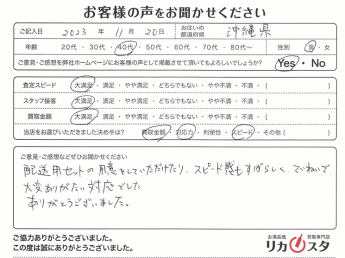 お客様の声をお聞かせください
ご記入日 2023年 11月 20日 お住いの都道府県 沖縄県
年齢 20代・30代・40代・50代・60代・70代・80代～ 性別 男・女
ご意見・ご感想を弊社ホームページにお客様の声として掲載させて頂いてもよろしいでしょうか? Yes・No
査定スピード 大満足・満足・やや満足・どちらでもない・やや不満・不満・( )
スタッフ接客 大満足・満足・やや満足・どちらでもない・やや不満・不満・( )
買取金額 大満足・満足・やや満足・どちらでもない・やや不満・不満・( )
当店をお選びいただきました決め手は? 買取金額・対応力・利便性・スピード・その他( )
ご意見・ご感想などぜひお聞かせください
配送用セットの用意をしていただけたり、スピード感もすばらしく、ていねいで
大変ありがたい対応でした
ありがとうございました。
ご協力ありがとうございました。
この度は誠にありがとうございました。
お酒高価 買取専門店
リカスタ